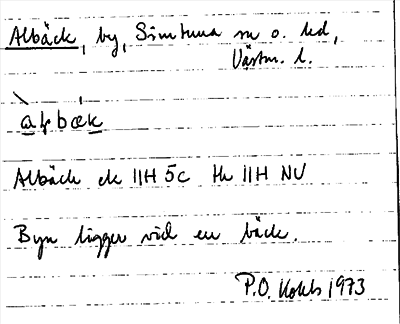 Albäck, by, Simtuna sn o. hd,
Västm. l.
àḷbæk
Albäck ek 11H 5c tk 11H NV
Byn ligger vid en bäck.
P.O. 1973